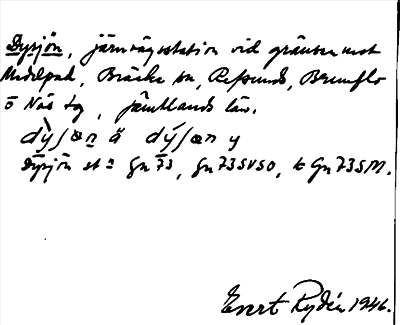 Dysjön, järnvägsstation vid gränsen mot
Medelpad, Bräcke sn, Refsunds, Brunflo
o Näs tg, Jämtlands län.
dỳʃøn ä dýʃøn y
Dysjön st = Gn 73, Gn 73 SVSO, t Gn 73 SM.
Evert Rydén 1946.